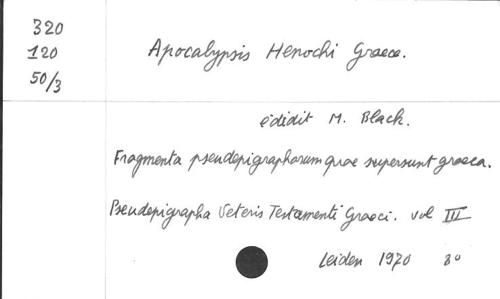 320
120
50/3
Apocalypsis Henochi Graece.
edidit M. Black.
Fragmenta pseudepigraphorum quae supersunt graeca.
Pseudepigrapha Veteris Testamenti Graeci. vol III
Leiden 1970 8o